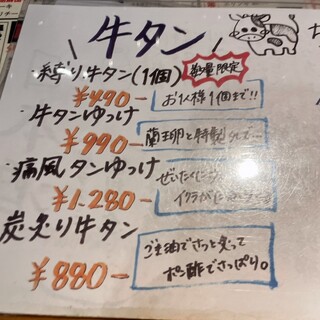 牛タン
握り牛タン(1個)
数量限定
¥490-
お1人様1個まで!!
牛タンゆっけ
¥990-
蘭王卵と特製タレで…
痛風タンゆっけ
¥1.280-
ぜいたくに
イクラがた
炭炙り牛タン
¥880-
ごま油でさっと炙って
ポン酢でさっぱり。